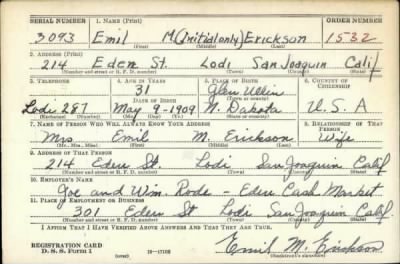 SERIAL NUMBER 1. NAME (Print) ORDER NUMBER
3093 Emil M. (Initial only) Erickson 1532
(First) (Middle) (Last)
2. ADDRESS (Print)
214 Eden St. Lodi San Joaquin Calif
(Number and street or R. F. D. number) (Town) (County) (State)
3. TELEPHONE 4. AGE IN YEARS 5. PLACE OF BIRTH 6. COUNTRY OF CITIZENSHIP
31 Glen Ullin
DATE OF BIRTH (Town or county)
Lodi 287 May 9-1909 N. Dakota U.S.A
(Exchange) (Number) (Mo.) (Day) (Yr.) (State or country)
7. NAME OF PERSON WHO WILL ALWAYS KNOW YOUR ADDRESS 8. RELATIONSHIP OF THAT PERSON
Mrs Emil M. Erickson Wife
(Mr., Mrs., Miss) (First) (Middle) (Last)
9. ADDRESS OF THAT PERSON
214 Eden St. Lodi San Joaquin Calif
(Number and street or R. F. D. number) (Town) (County) (State)
10. EMPLOYER'S NAME
Joe and Wm. Rode - Eden Cash Market
11. PLACE OF EMPLOYMENT OR BUSINESS
301 Eden St Lodi San Joaquin Calif.
(Number and street or R. F. D. number) (Town) (County) (State)
I AFFIRM THAT I HAVE VERIFIED ABOVE ANSWERS AND THAT THEY ARE TRUE.
REGISTRATION CARD
D. S. S. Form 1 (over) 16-17105 Emil M. Erickson
(Registrant's signature)